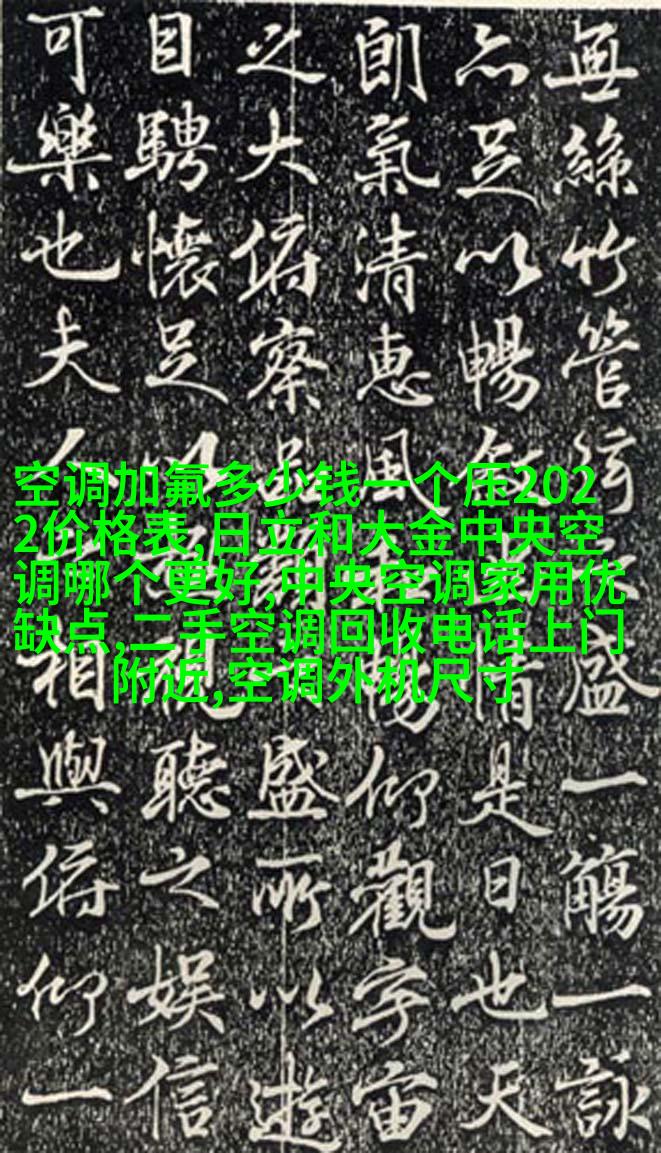 無絲竹管弦盛一觴一詠
亦足以暢敘情是日也天
朗氣清惠風暢仰觀宇宙
之大俯察品盛所以遊
目騁懷足以視聽之娛信
可樂也夫人相與俯仰一
空调加氟多少钱一个压202
2价格表,日立和大金中央空
调哪个更好,中央空调家用优
缺点,二手空调回收电话上门
附近,空调外机尺寸